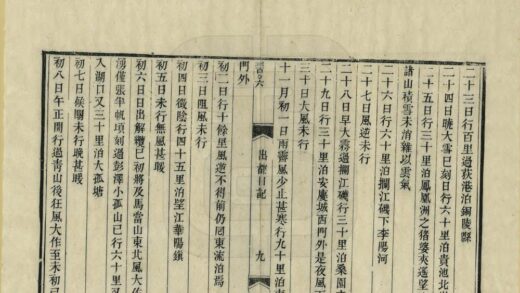 二十三日行百里過荻港泊銅陵縣
二十四日曉大雪巳刻日行六十里泊貴池北岸
二十五日行三十里泊鳳凰洲之猪婆夾遙望
諸山積雪未消雜以雲氣
二十六日行六十里泊攔江磯下李陽河
二十七日風逆未行
二十八日早大霧過攔江磯行三十里泊桑園
二十九日行三十里泊安慶城西門外是夜風
三十日大風未行
十一月初一日雨霽風少止甚寒行九十里泊
門外
出龍日記
九
初二日行十餘里風逆不得前仍回東流泊焉
初三日阻風未行
初四日微陰行四十五里泊望江華陽鎮
初五日未行無風甚暖
初六日日出解纜巳初將及馬當山東北風大作
湧僅張半帆頃刻過彭澤小孤山已行六十里
入湖口又三十里泊大孤塘
初七日候關未行晚甚暖
初八日午正開行過青山後狂風大作至未初